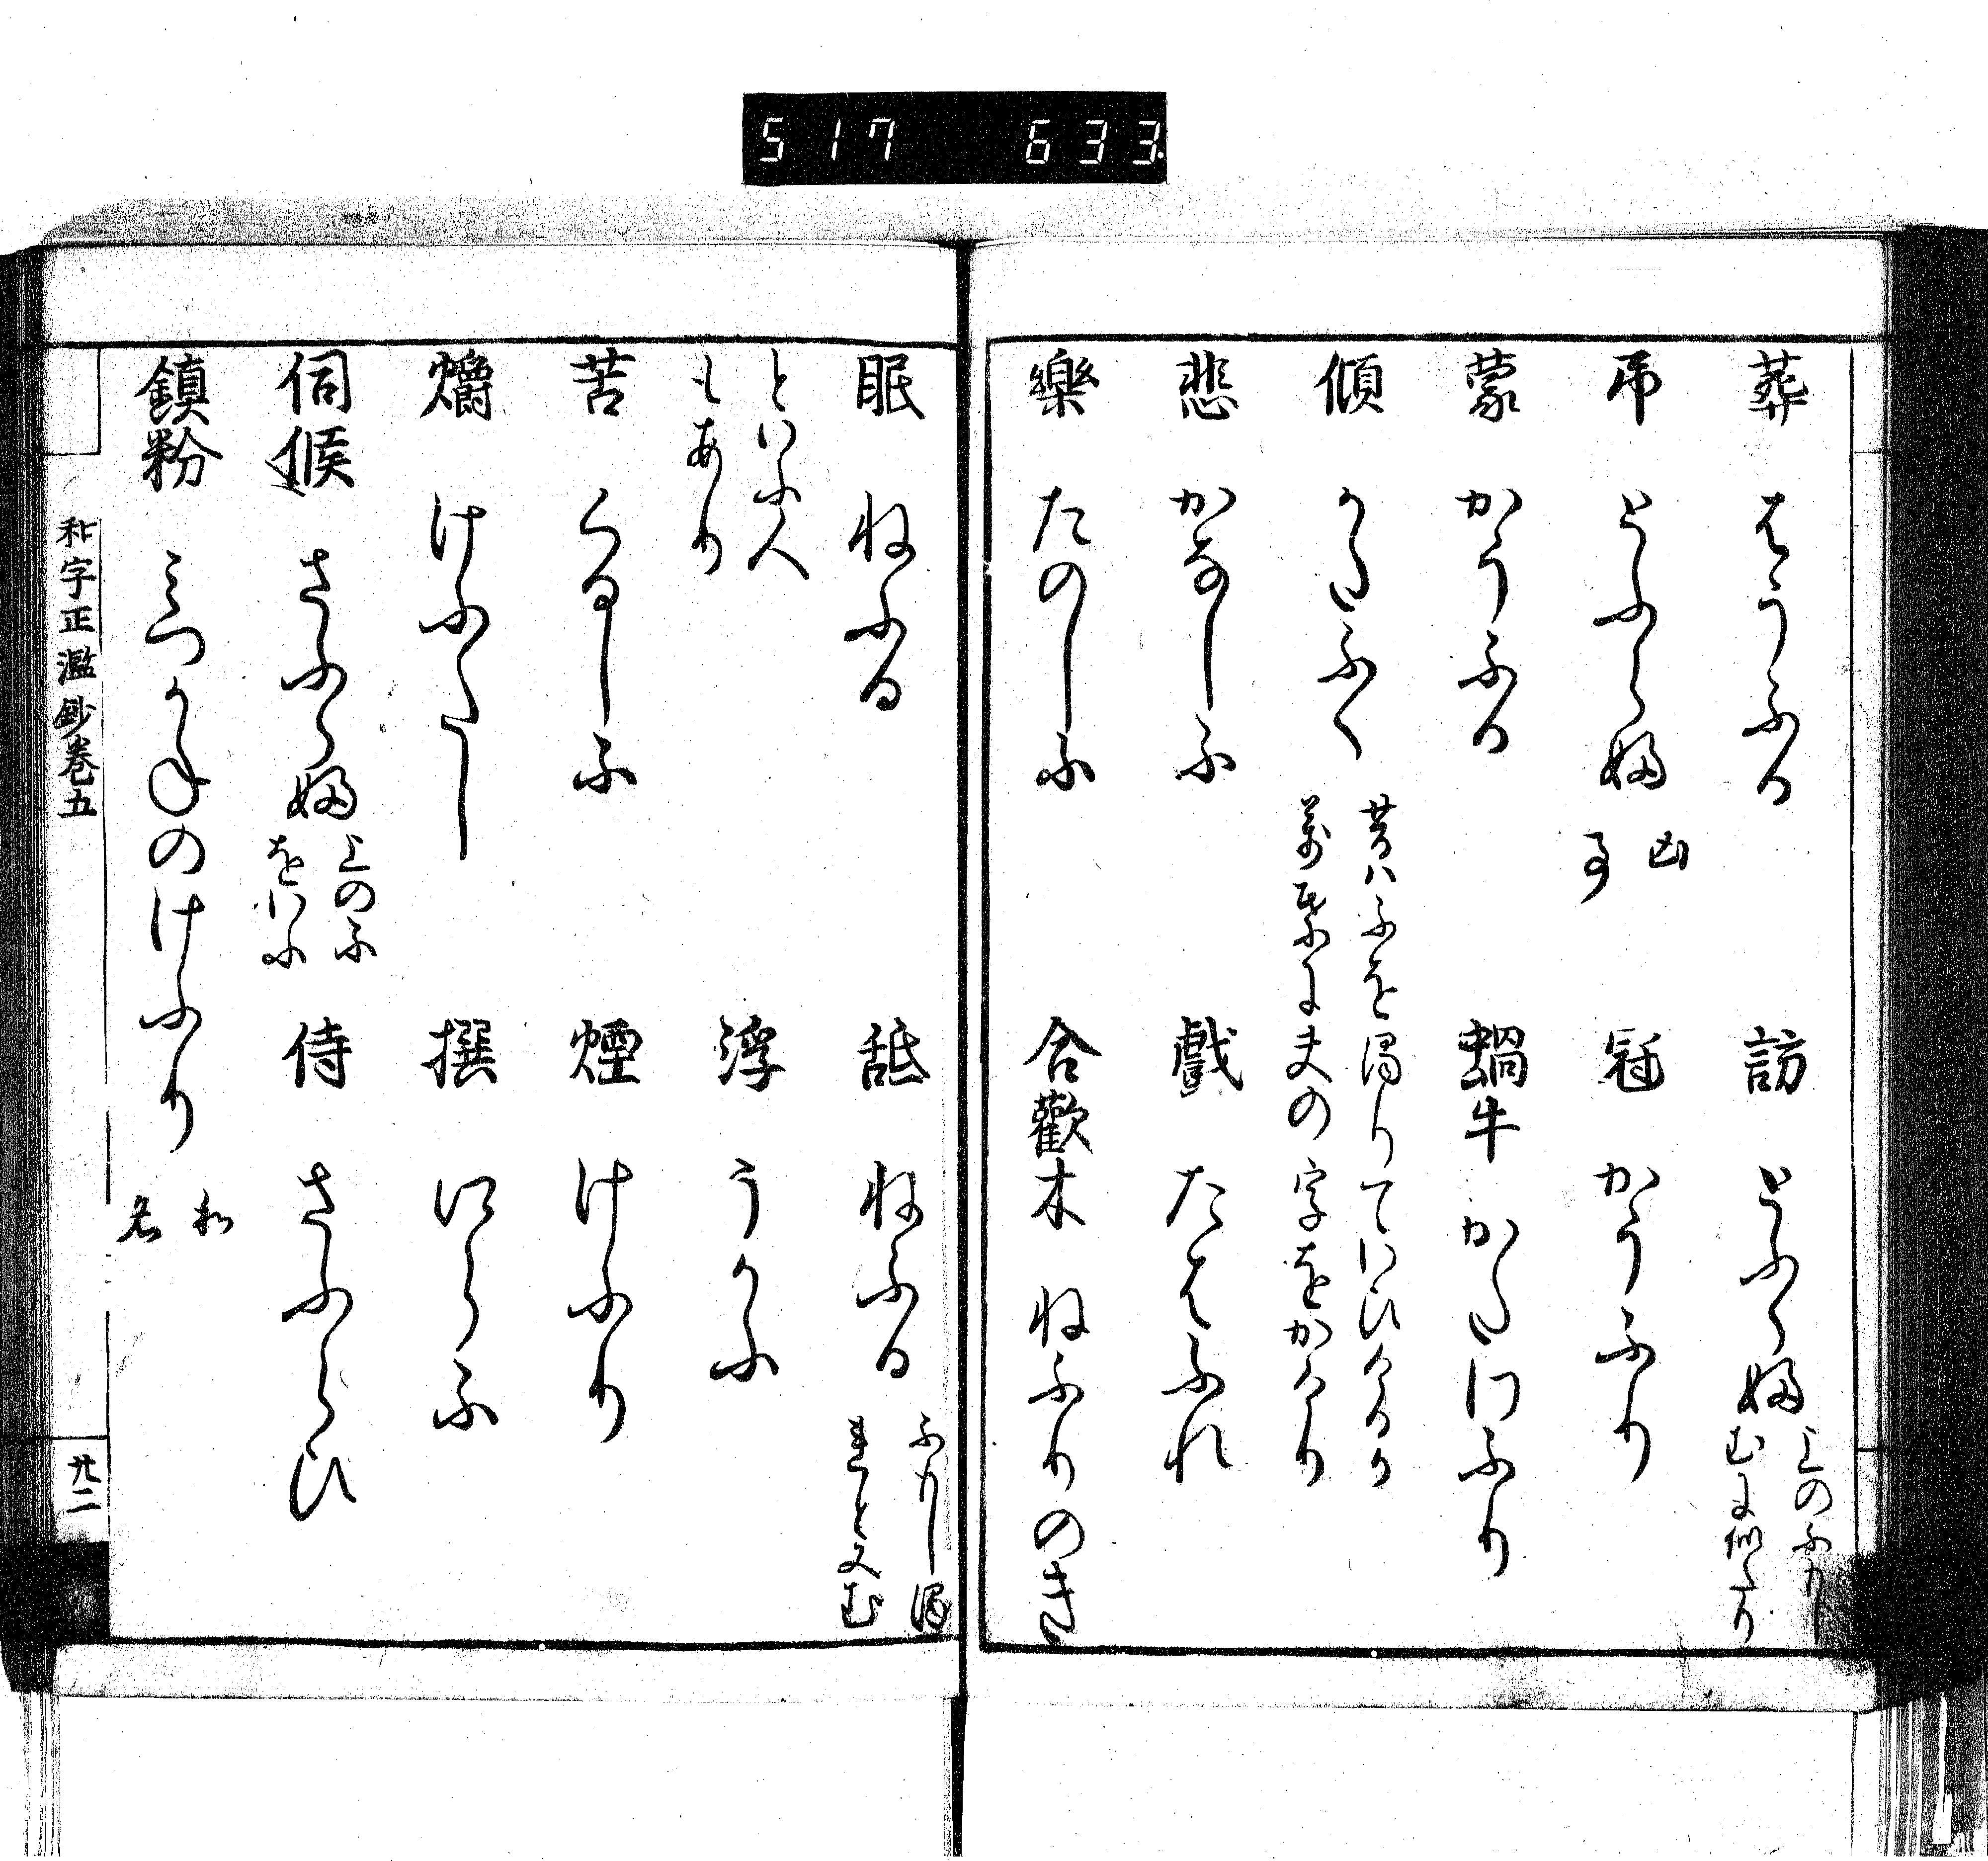 517 633
葬 はうふる
訪 とふらふ 上のふもし
むに似たり
弔 とふらふ 凶
事
冠 かうふり
蒙 かうふる
蝸牛 かたつふり
傾 かたふく 昔はふを濁りていひけるか
萬葉に夫の字をかけり
悲 かなしふ
戯 たはふれ
樂 たのしふ
合歡木 ねふりのき
眠 ねふる
舐 ねふる ふもし濁
といふ人
もあり
浮 うかふ
苦 くるしふ
煙 けふり
けふたし
撰 えらふ
伺候 さふらふ 上のふ
をいふ
侍 さふらひ
鎮粉 みつかねのけふり 和
名
和字正濫鈔巻五
廿二